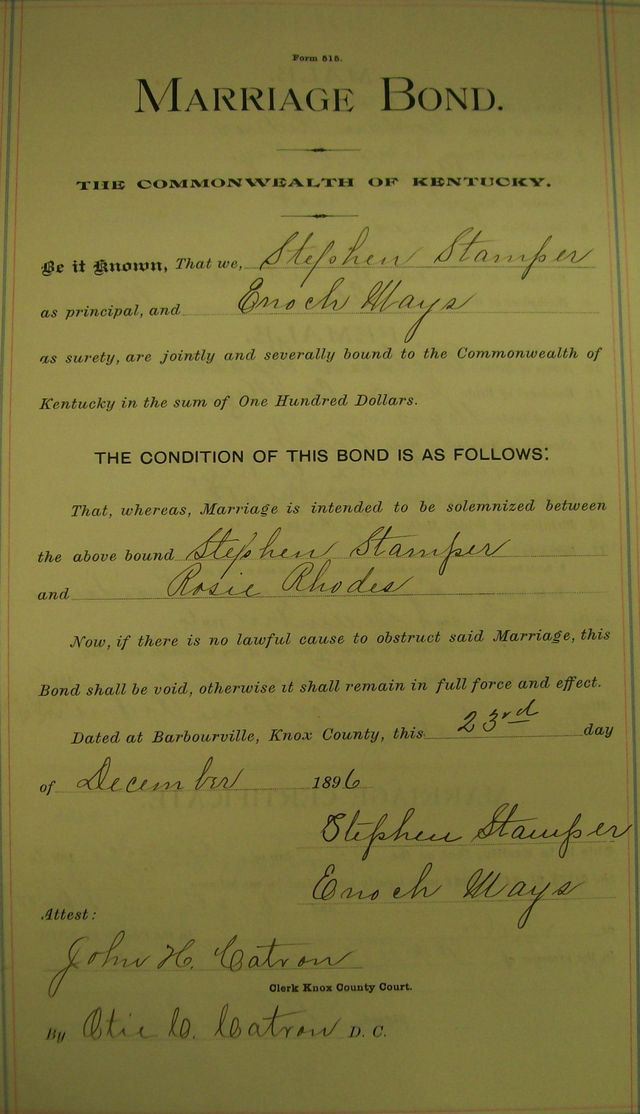 Form 515.
MARRIAGE BOND.
THE COMMONWEALTH OF KENTUCKY.
Be it Known, That we, Stephen Stamper
as principal, and Enoch Mays
as surety, are jointly and severally bound to the Commonwealth of
Kentucky in the sum of One Hundred Dollars.
THE CONDITION OF THIS BOND IS AS FOLLOWS:
That, whereas, Marriage is intended to be solemnized between
the above bound Stephen Stamper
and Rosie Rhodes
Now, if there is no lawful cause to obstruct said Marriage, this
Bond shall be void, otherwise it shall remain in full force and effect.
Dated at Barbourville, Knox County, this 23rd day
of December 1896
Stephen Stamper
Enoch Mays
Attest:
John H. Catron
Clerk Knox County Court.
By Catron D. C.